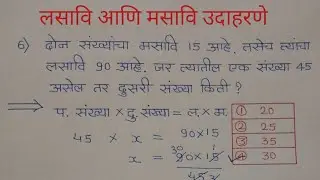 लसावि आणि मसावि उदाहरणे
6) दोन संख्यांचा मसावि 15 आहे. तसेच त्यांचा
लसावि 90 आहे. जर त्यातील एक संख्या 45
असेल तर दुसरी संख्या किती ?
→ प. संख्या × दु. संख्या = ल. × म.
45 × x = 90×15
x = 90×15
45
1 20
2 25
3 35
4 30